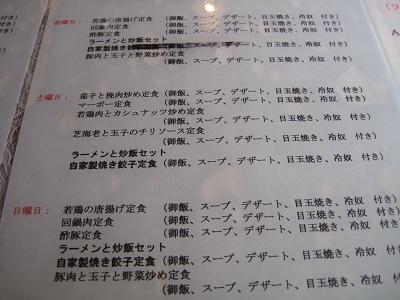 金曜日： 若鶏の唐揚げ定食 （御飯、スープ、デザート、目玉焼き、冷奴 付き）
回鍋肉定食 （御飯、スープ、デザート、目玉焼き、冷奴 付き）
酢豚定食 （御飯、スープ、デザート、目玉焼き、冷奴 付き）
ラーメンと炒飯セット
自家製焼き餃子定食 （御飯、スープ、デザート、目玉焼き、冷奴 付き）
豚肉と玉子と野菜炒め定食
（御飯、スープ、デザート、目玉焼き、冷奴 付き）
土曜日： 茄子と挽肉炒め定食 （御飯、スープ、デザート、目玉焼き、冷奴 付き）
マーボー定食 （御飯、スープ、デザート、目玉焼き、冷奴 付き）
若鶏肉とカシュナッツ炒め定食
（御飯、スープ、デザート、目玉焼き、冷奴 付き）
芝海老と玉子のチリソース定食
（御飯、スープ、デザート、目玉焼き、冷奴 付き）
ラーメンと炒飯セット
自家製焼き餃子定食 （御飯、スープ、デザート、目玉焼き、冷奴 付き）
日曜日： 若鶏の唐揚げ定食 （御飯、スープ、デザート、目玉焼き、冷奴 付き）
回鍋肉定食 （御飯、スープ、デザート、目玉焼き、冷奴 付き）
酢豚定食 （御飯、スープ、デザート、目玉焼き、冷奴 付き）
ラーメンと炒飯セット
自家製焼き餃子定食 （御飯、スープ、デザート、目玉焼き、冷奴 付き）
豚肉と玉子と野菜炒め定食
（御飯、スープ、デザート、目玉焼き、冷奴 付き）